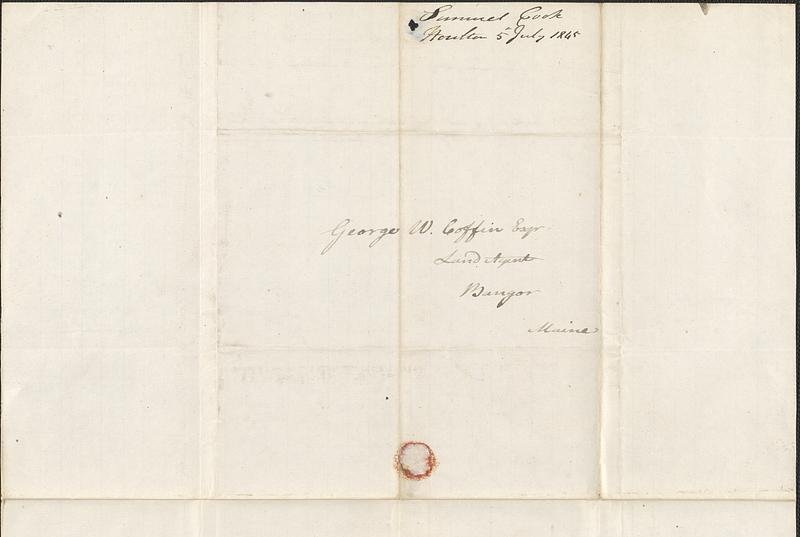 Samuel Cook
Houlton 5 July 1845
George W. Coffin Esqr
Land Agent
Bangor
Maine